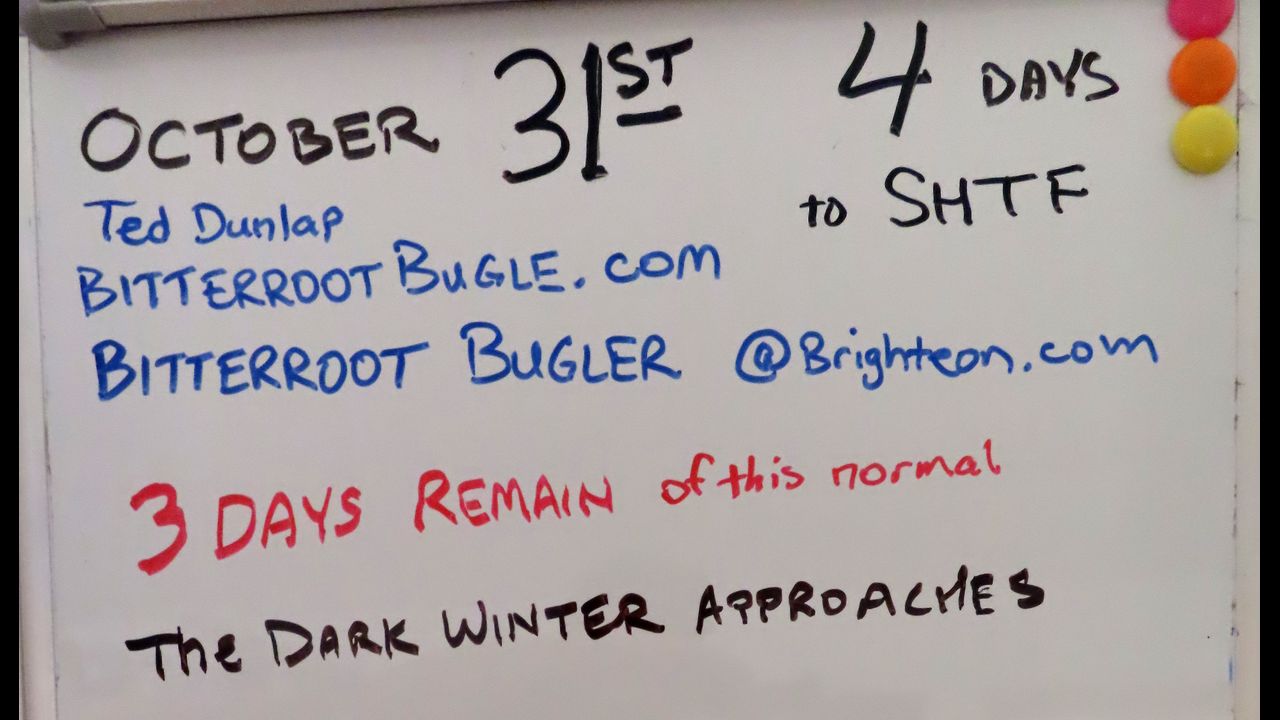 OCTOBER 31ST 4 DAYS
to SHTF
Ted Dunlap
BITTERROOT BUGLE.com
BITTERROOT BUGLER @Brighteon.com
3 DAYS REMAIN of this normal
The DARK WINTER APPROACHES